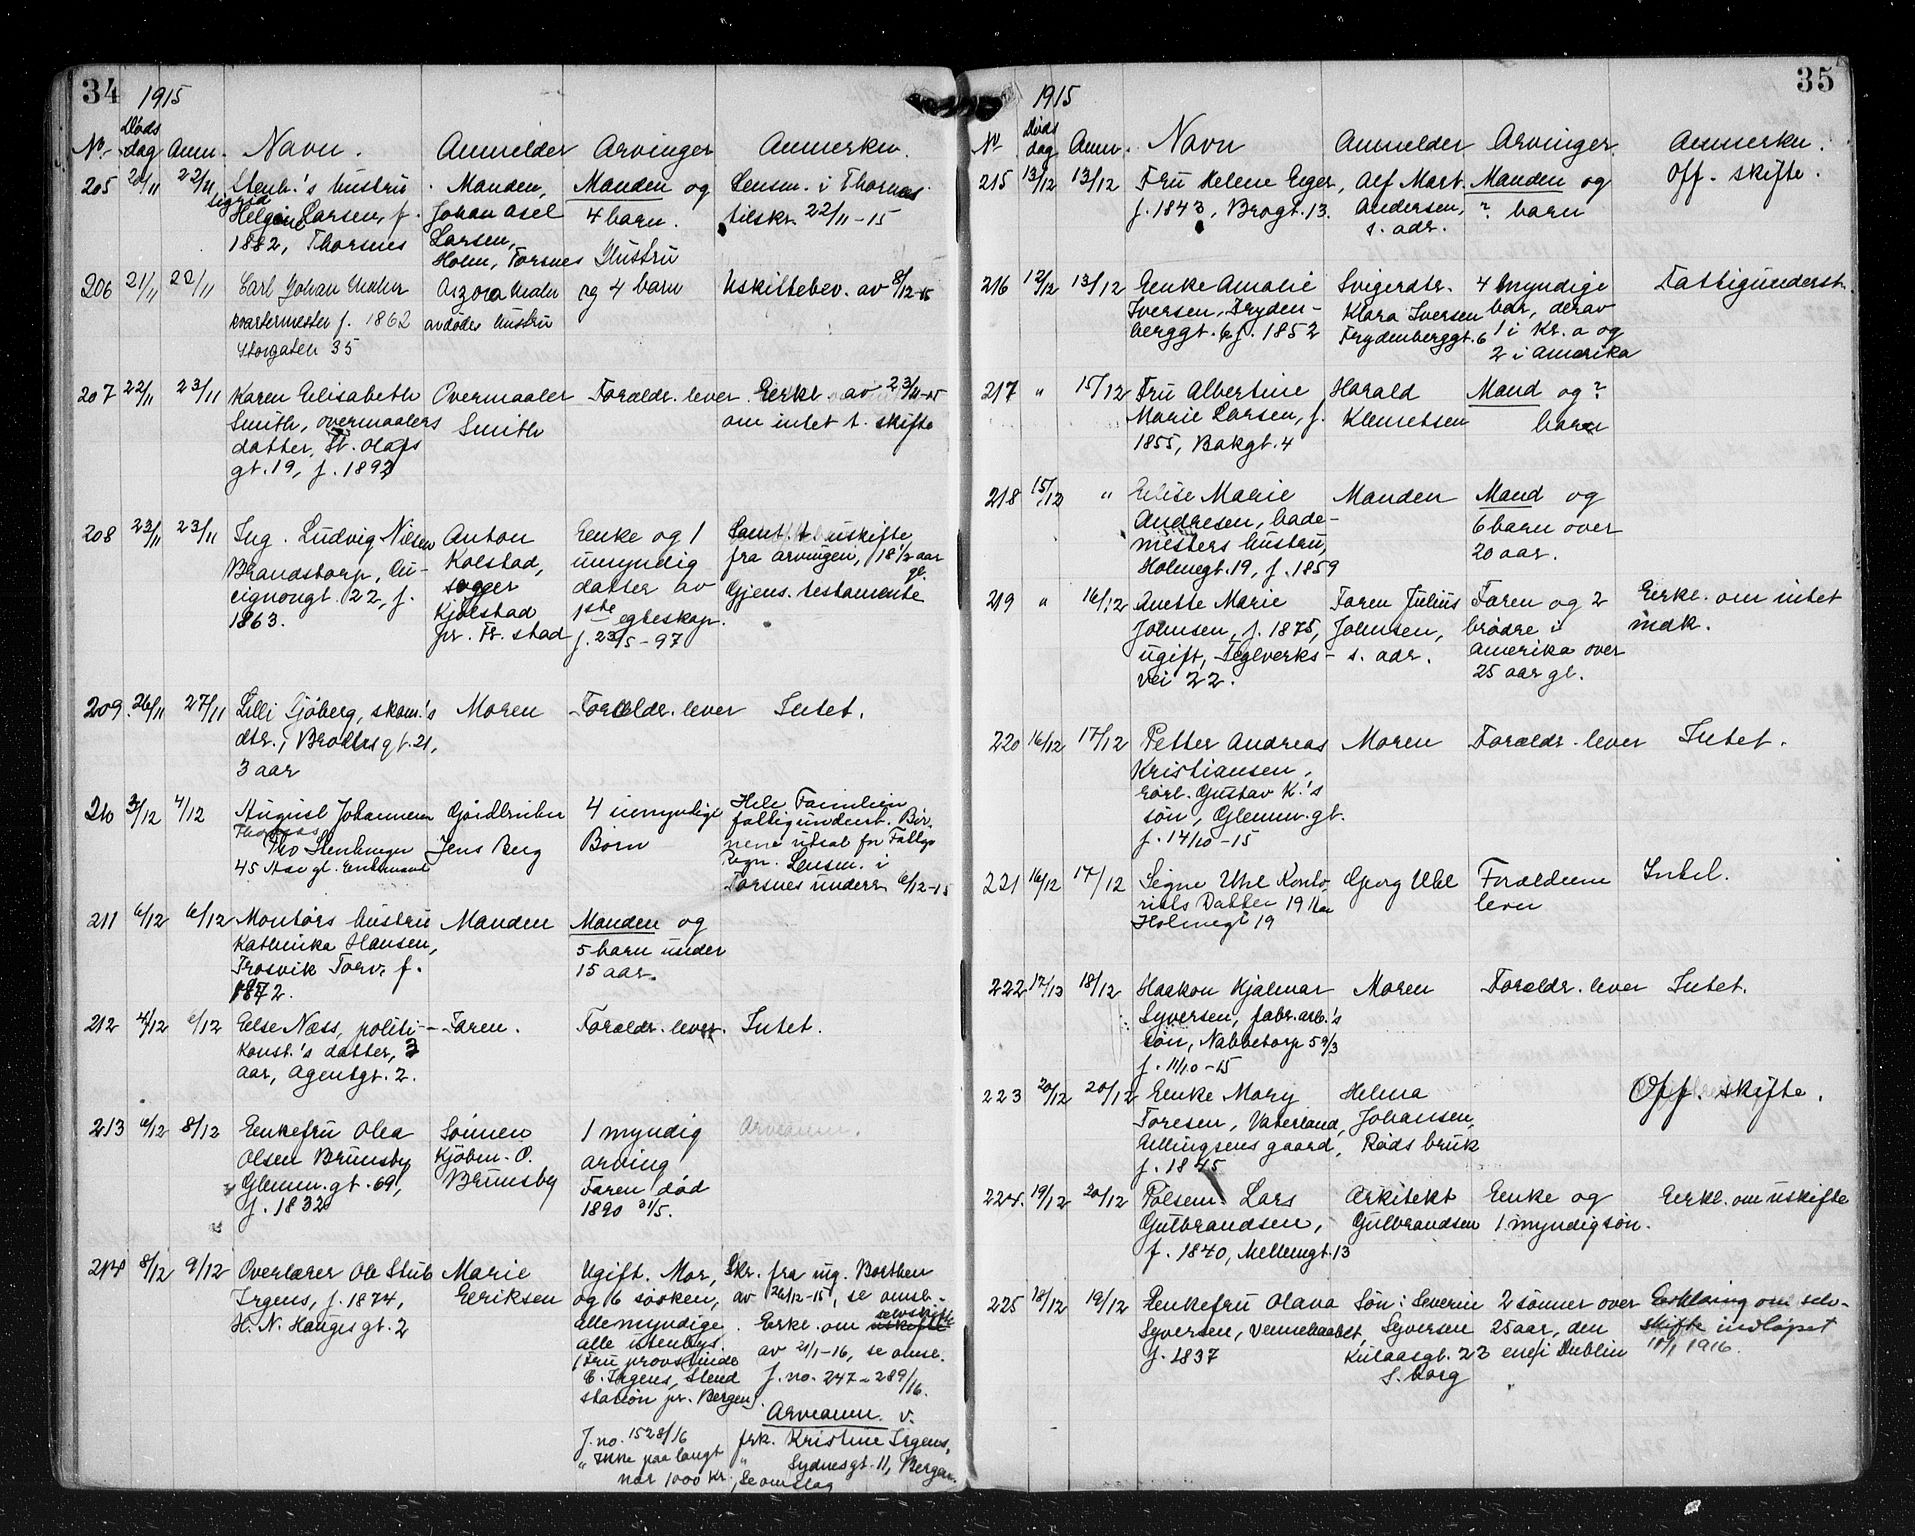 34
1915
No. Døds dag Anm. Navn. Anmelder Arvinger Anmerkn.
205 20/11 22/11 Stenh.'s hustru Manden, Manden og Lensm. i Thorsnes
Sigrid
Helgine Larsen, f. Johan Axel 4 barn. tilskr. 22/11-15
1882, Thorsnes Larsen,
Holm, Torsnes
206 21/11 22/11 Carl Johan Arzora Hustru
kvartermester f. 1862 avdødes hustru og 4 barn Uskiftebev. av 8/12-15
Storgaten 35
207 22/11 23/11 Karen Elisabeth Overmaaler Forældr. lever. Erkl. av 23/11-15
Smith, overmaalers Smith om intet t. skifte
datter, St. Olafs
gt. 19, f. 1892
208 23/11 23/11 Ing. Ludvig Nilsen Anton Enke og 1 Samt. t. uskifte
Brandstorp, Cicignongt. 22, f. Kolstad, umyndig fra arvingen, 18 1/2 aar gl.
1863. datter av Gjens. testamente
Kjølstad 1ste egteskap.
pr. Fr.stad f. 23/5-97
209. 26/11 27/11 Lilli Sjøberg, skom.'s Moren Forældr. lever Intet.
dtr., Brochsgt. 21,
3 aar
210 3/12 4/12 August Johannesen Gårdbruker 4 umyndige Hele Familien
Thomas Jens Berg Børn fattigunderst. Bør-
Tho nene utsat for Fattigv.
45 Aar gl. Enkemand Regn. Lensm. i
Torsnes underr. 6/12-15
211 6/12 6/12 Montørs hustru Manden Manden og
Kathinka Hansen, 5 barn under
Trosvik Torv, f. 15 aar.
1872.
212 4/12 6/12 Else Næss, politi- Faren. Forældr. lever. Intet.
konst.'s datter, 3
aar, Agentgt. 2.
213 6/12 8/12 Enkefru Olea Sønnen 1 myndig Arveanm.
Olsen Brunsby Kjøbm. O. arving
Glemm.gt. 69, Brunsby Faren død
f. 1832 1890 31/5.
214 8/12 9/12 Overlærer Ole Stub Marie Ugift. Mor, Skr. fra ing. Borthen
Irgens, f. 1874, Eriksen og 6 søsken, av 26/12-15, se omsl.
H. N. Haugesgt. 2 alle myndige. Erkl. om uskifte selvskifte
alle utenbys. av 21/1-16, se omsl.
(Fru provstinde J. no. 247 - 289/16.
C. Irgens, Stend
station pr. Bergen).
Arveanm. v.
J. no. 1528/16 frk. Kristine Irgens,
" Ikke paa langt " Sydnesgt. 11, Bergen.
nær 1000 kr., se omslag
35
1915
No. Døds dag Anm. Navn Anmelder Arvinger. Anmerkn.
215 13/12 13/12 Fru Helene Eger, Alf Mart. Manden og Off. skifte.
f. 1843, Brogt. 13. Andersen, ? barn
s. adr.
216 12/12 13/12 Enke Amalie Svigerdtr. 4 myndige Fattigunderst.
Iversen, Fryden- Klara Iversen bar, derav
berggt. 6, f. 1852 Frydenberggt. 6 1 i Kr.a og
2 i Amerika
217 " 15/12 Fru Albertine Harald Mand og ?
Marie Larsen, f. Klemetsen barn
1855, Bakgt. 4
218 15/12 " Elise Marie Manden Mand og
Andresen, bade- 6 barn over
mesters hustru, 20 aar.
Holmegt. 19, f. 1859
219 " 16/12 Anette Marie Faren Julius Faren og 2 Erkl. om intet
Johnsen, f. 1875, Johnsen, brødre i indk.
ugift, Teglverks- s. adr. Amerika over
vei 22. 25 aar gl.
220 16/12 17/12 Petter Andreas Moren Forældr. lever Intet.
Kristiansen,
Gustav K.'s
søn, Glemm.gt.
f. 14/10-15
221 16/12 17/12 Signe Uhl Konto- Georg Uhl Forældrene Intet.
rists Datter 19 Aar lever
Holmegt 19
222 17/12 18/12 Haakon Hjalmar Moren Forældr. lever Intet.
Syversen, fabr.arb.'s
søn, Nabbetorp 59/3
f. 11/10-15
223 20/12 20/12 Enke Mary Helma Off. skifte.
Toresen, Vaterland, Johansen,
Ellingsens gaard, Røds bruk
f. 1845
224. 19/12 20/12 Pølsem. Lars Arkitekt Enke og Erkl. om uskifte
Gulbrandsen, Gulbrandsen 1 myndig søn.
f. 1840, Mellemgt. 13
225 18/12 19/12 Enkefru Olava Søn: Severin 2 sønner over Erklæring om selv-
Syversen, Vennehaabet, Syversen 25 aar, den skifte indløpet
f. 1837 Kulaasgt. 22 ene i Dublin 18/1 1916.
S.borg